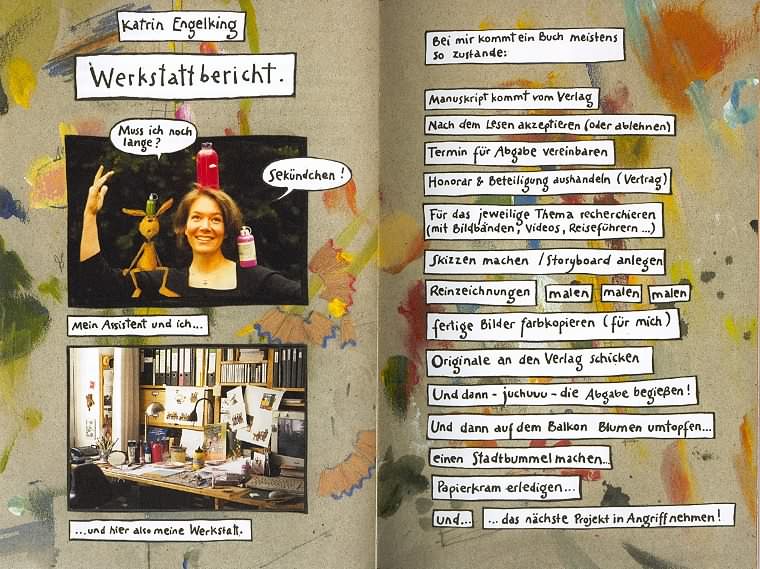 Katrin Engelking
Werkstattbericht.
Muss ich noch
lange?
Sekündchen!
Mein Assistent und ich...
...und hier also meine Werkstatt.
Bei mir kommt ein Buch meistens
so zustande:
Manuskript kommt vom Verlag
Nach dem Lesen akzeptieren (oder ablehnen)
Termin für Abgabe vereinbaren
Honorar & Beteiligung aushandeln (Vertrag)
Für das jeweilige Thema recherchieren
(mit Bildbänden, Videos, Reiseführern...)
Skizzen machen / Storyboard anlegen
Reinzeichnungen malen malen malen
fertige Bilder farbkopieren (für mich)
Originale an den Verlag schicken
Und dann - juchuuu - die Abgabe begießen!
Und dann auf dem Balkon Blumen umtopfen...
einen Stadtbummel machen...
Papierkram erledigen...
und... ...das nächste Projekt in Angriff nehmen!